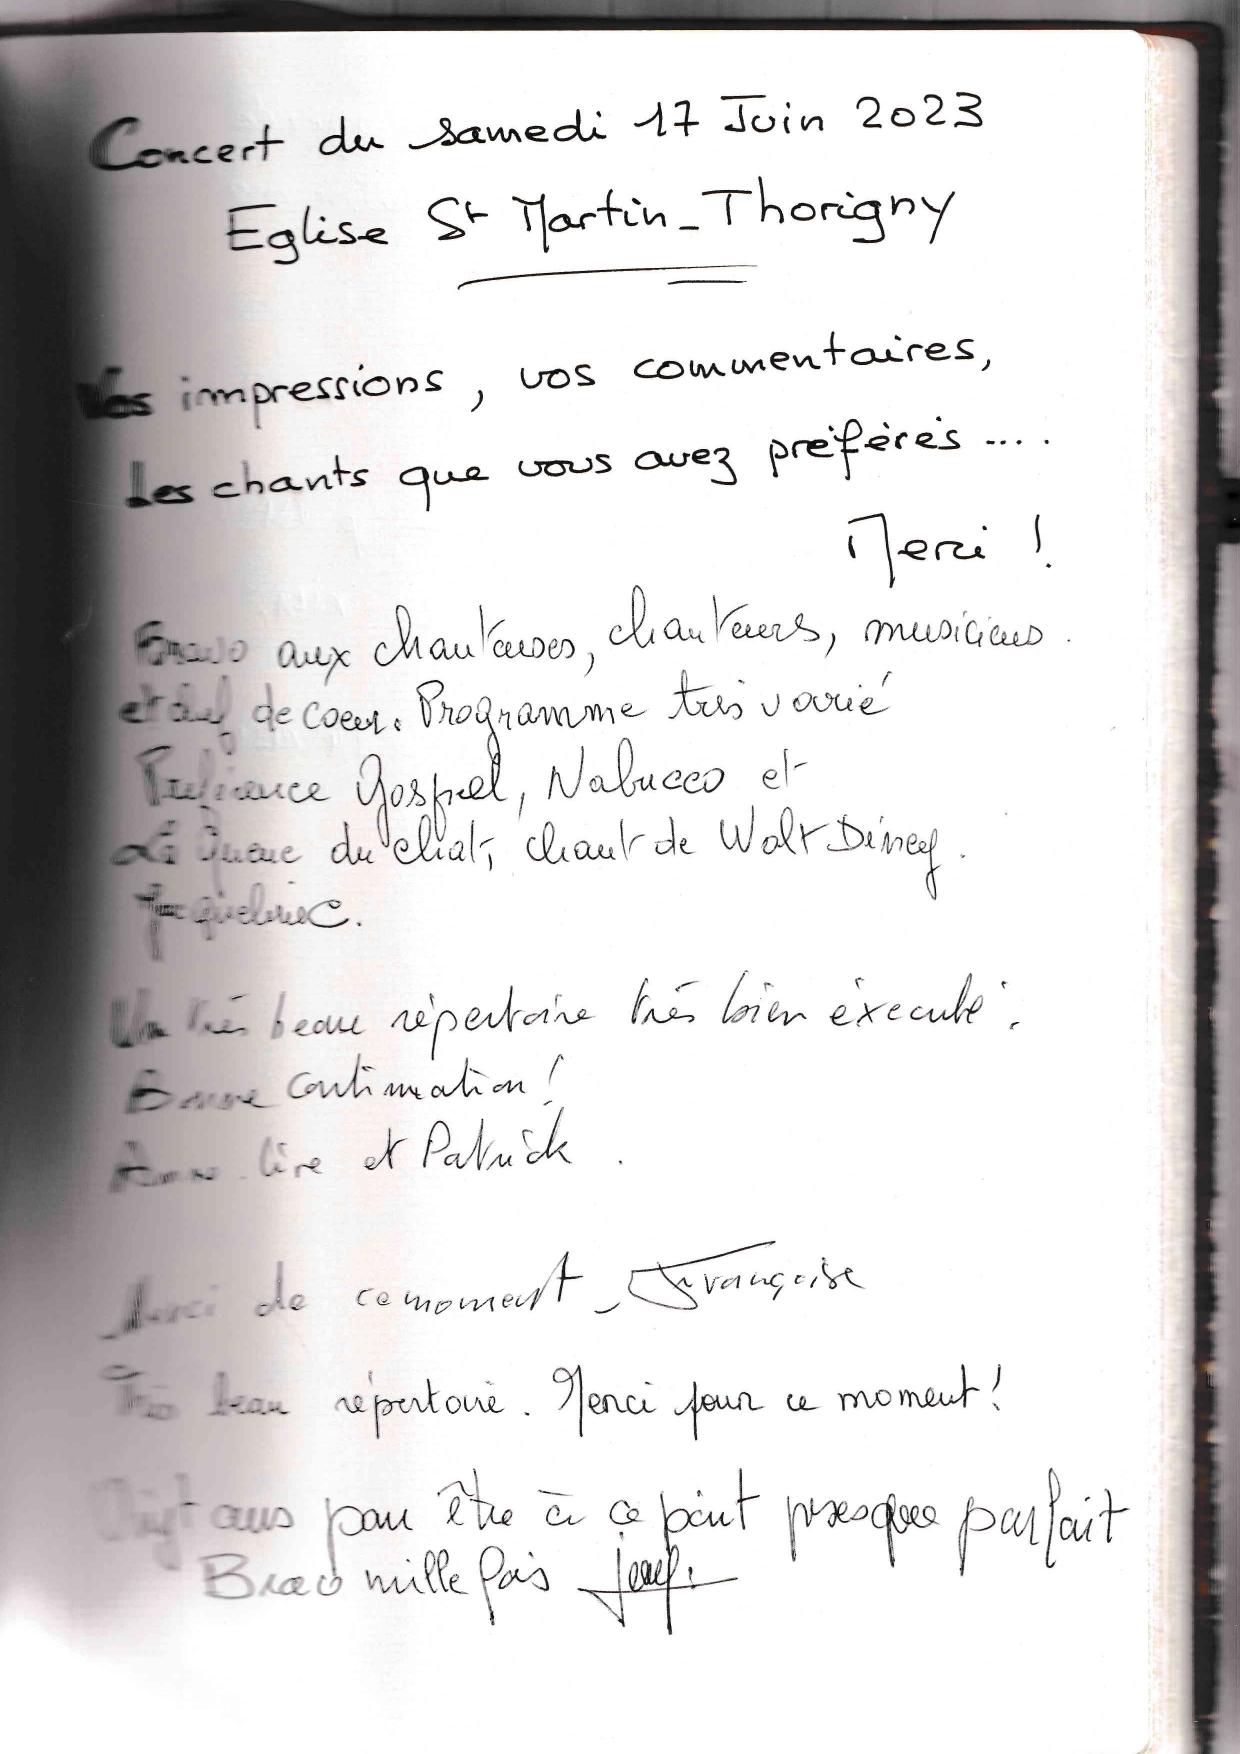 Concert du samedi 17 Juin 2023
Eglise St Martin - Thorigny
Vos impressions, vos commentaires,
Les chants que vous avez préférés ....
Merci !
Bravo aux chanteuses, chanteurs, musiciens.
et chef de coeur. Programme très varié
Préférence Gospel, Nabucco et
La Queue du chat, chant de Walt Disney.
Jacqueline.
Un très beau répertoire très bien éxecuté.
Bonne continuation !
et Patrick.
Merci de ce moment - Françoise
Très beau répertoire. Merci pour ce moment !
ans pour être à ce point presque parfait
Bravo mille fois